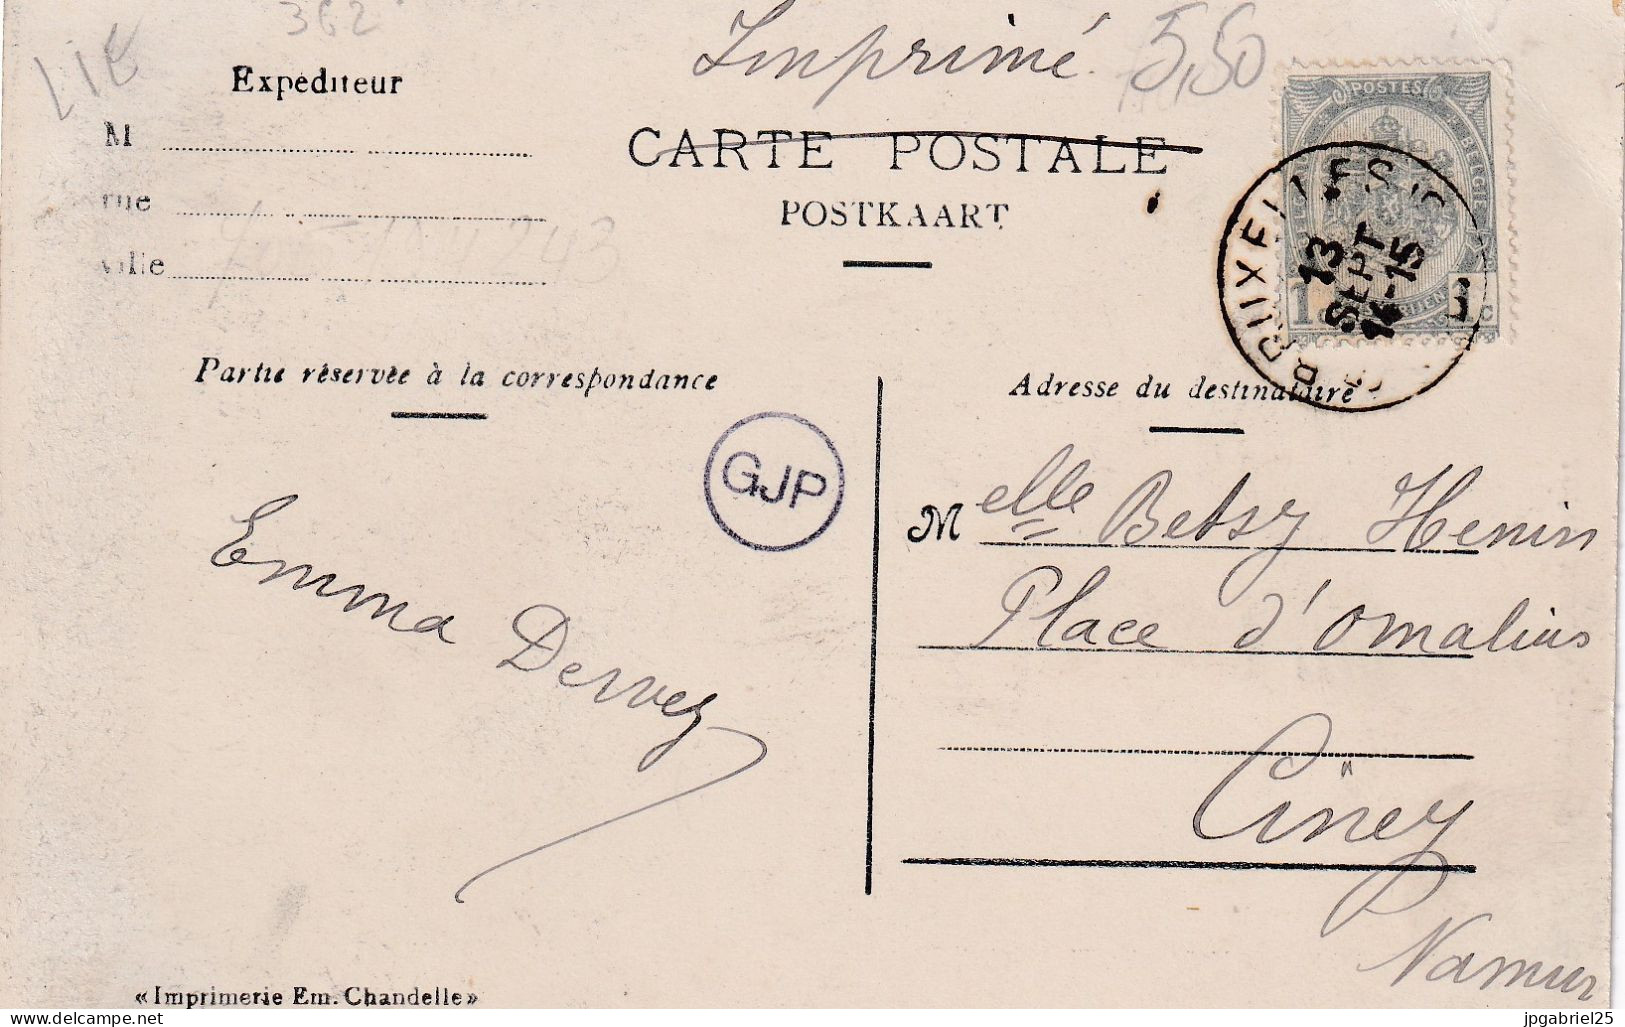 362
LIE
Imprimé. 5,50
Expéditeur
M
rue
ville
CARTE POSTALE
POSTKAART
POSTES
BELGIE
1c 1c
BRUXELLES
13
SEPT
14-15
Partie réservée à la correspondance
Adresse du destinataire
GJP
Emma Dervez
Melle Betsy Henin
Place d'Omalius
Ciney
Namur
«Imprimerie Em. Chandelle»
delcampe.net
jpgabriel25